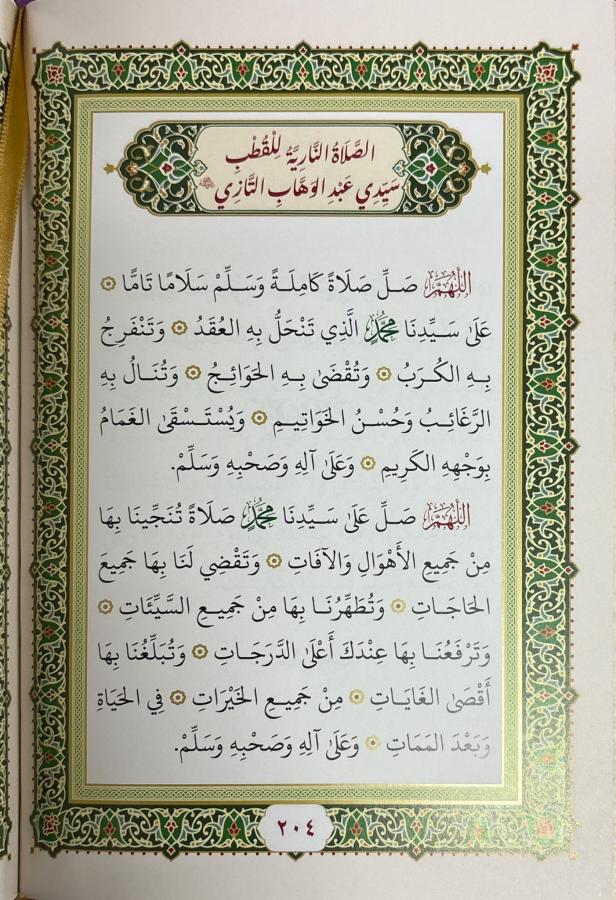 الصَّلَاةُ النَّارِيَّةُ لِلْقُطْبِ
سَيِّدِي عَبْدِ الوَهَّابِ التَّازِي
اللَّهُمَّ صَلِّ صَلَاةً كَامِلَةً وَسَلِّمْ سَلَامًا تَامًّا ۞
عَلَىٰ سَيِّدِنَا مُحَمَّدٍ الَّذِي تَنْحَلُّ بِهِ العُقَدُ ۞ وَتَنْفَرِجُ
بِهِ الكُرَبُ ۞ وَتُقْضَىٰ بِهِ الحَوَائِجُ ۞ وَتُنَالُ بِهِ
الرَّغَائِبُ وَحُسْنُ الخَوَاتِيمِ ۞ وَيُسْتَسْقَى الغَمَامُ
بِوَجْهِهِ الكَرِيمِ ۞ وَعَلَىٰ آلِهِ وَصَحْبِهِ وَسَلِّمْ.
اللَّهُمَّ صَلِّ عَلَىٰ سَيِّدِنَا مُحَمَّدٍ صَلَاةً تُنَجِّينَا بِهَا
مِنْ جَمِيعِ الأَهْوَالِ وَالآفَاتِ ۞ وَتَقْضِي لَنَا بِهَا جَمِيعَ
الحَاجَاتِ ۞ وَتُطَهِّرُنَا بِهَا مِنْ جَمِيعِ السَّيِّئَاتِ ۞
وَتَرْفَعُنَا بِهَا عِنْدَكَ أَعْلَى الدَّرَجَاتِ ۞ وَتُبَلِّغُنَا بِهَا
أَقْصَى الغَايَاتِ ۞ مِنْ جَمِيعِ الخَيْرَاتِ ۞ فِي الحَيَاةِ
وَبَعْدَ المَمَاتِ ۞ وَعَلَىٰ آلِهِ وَصَحْبِهِ وَسَلِّمْ.
٢٠٤